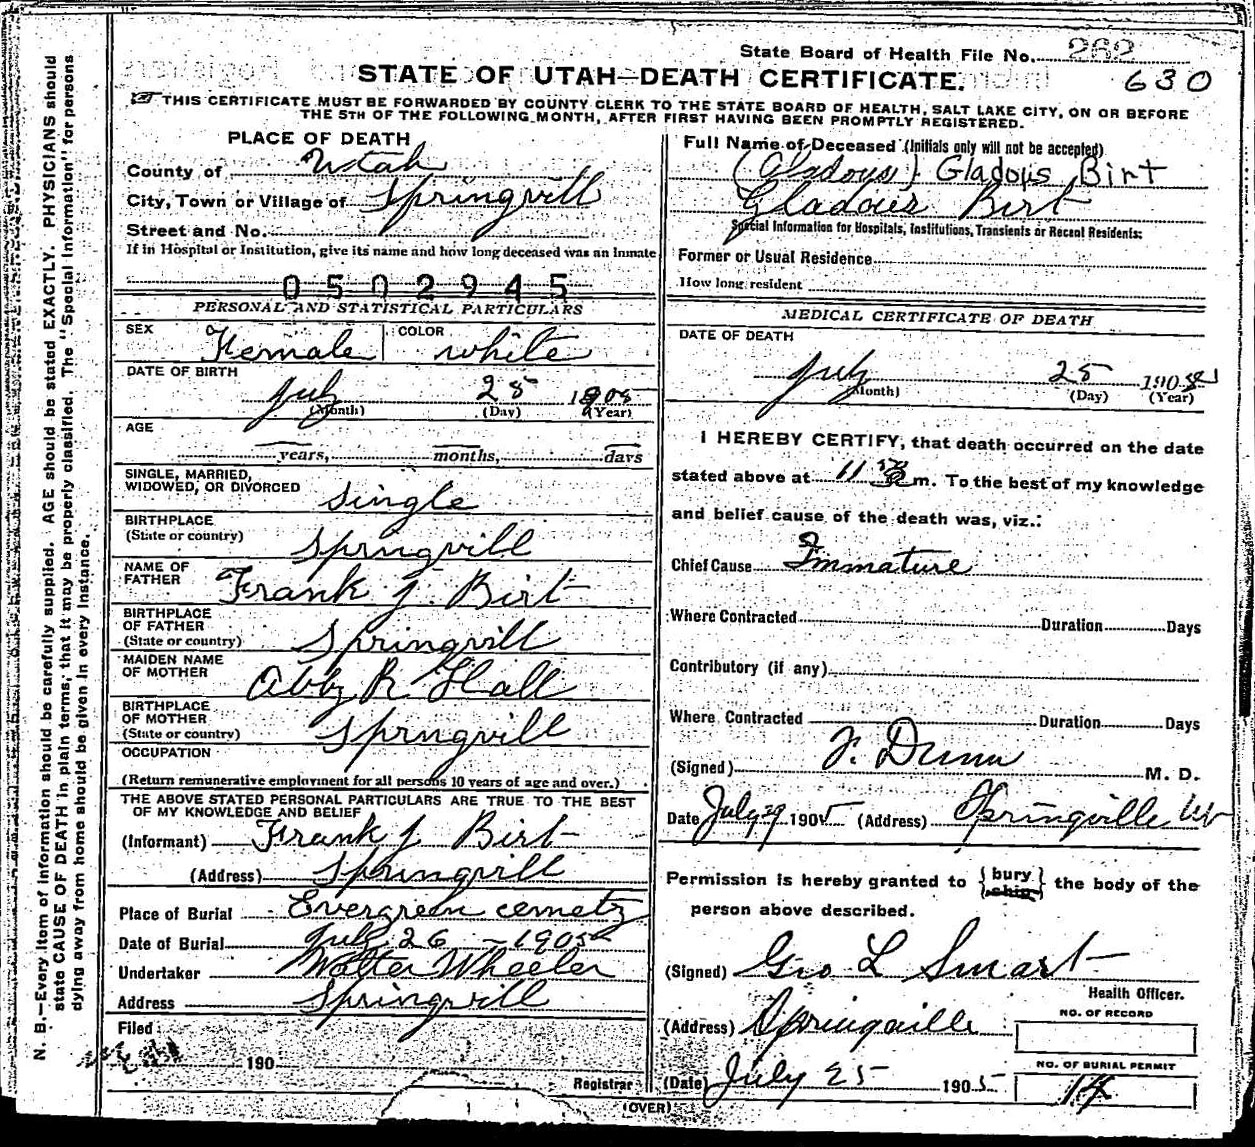 State Board of Health File No. 262
STATE OF UTAH—DEATH CERTIFICATE.
630
THIS CERTIFICATE MUST BE FORWARDED BY COUNTY CLERK TO THE STATE BOARD OF HEALTH, SALT LAKE CITY, ON OR BEFORE
THE 5TH OF THE FOLLOWING MONTH, AFTER FIRST HAVING BEEN PROMPTLY REGISTERED.
N. B.—Every item of information should be carefully supplied. AGE should be stated EXACTLY. PHYSICIANS should
state CAUSE OF DEATH in plain terms, that it may be properly classified. The "Special Information" for persons
dying away from home should be given in every instance.
PLACE OF DEATH
County of Utah
City, Town or Village of Springvill
Street and No.
If in Hospital or Institution, give its name and how long deceased was an inmate
0502945
PERSONAL AND STATISTICAL PARTICULARS
SEX Female COLOR white
DATE OF BIRTH
July 25 1905
(Month) (Day) (Year)
AGE
years, months, days
SINGLE, MARRIED,
WIDOWED, OR DIVORCED single
BIRTHPLACE
(State or country) Springvill
NAME OF
FATHER Frank J. Birt
BIRTHPLACE
OF FATHER
(State or country) Springvill
MAIDEN NAME
OF MOTHER Abby R Hall
BIRTHPLACE
OF MOTHER
(State or country) Springvill
OCCUPATION
(Return remunerative employment for all persons 10 years of age and over.)
THE ABOVE STATED PERSONAL PARTICULARS ARE TRUE TO THE BEST
OF MY KNOWLEDGE AND BELIEF
(Informant) Frank J. Birt
(Address) Springvill
Place of Burial Evergreen cemetry
Date of Burial July 26 - 1905
Undertaker Walter Wheeler
Address Springvill
Filed
190
Registrar
Full Name of Deceased (Initials only will not be accepted)
(Gladoys) Gladoys Birt
Gladoies Birt
Special Information for Hospitals, Institutions, Transients or Recent Residents:
Former or Usual Residence
How long resident
MEDICAL CERTIFICATE OF DEATH
DATE OF DEATH
July 25 190
(Month) (Day) (Year)
I HEREBY CERTIFY, that death occurred on the date
stated above at 11 m. To the best of my knowledge
and belief cause of the death was, viz.:
Chief Cause Immature
Where Contracted Duration Days
Contributory (if any)
Where Contracted Duration Days
(Signed) F. Dunn M. D.
Date July 29 1905 (Address) Springville Ut
Permission is hereby granted to {bury ship} the body of the
person above described.
(Signed) Geo L Smart
Health Officer.
(Address) Springville
NO. OF RECORD
NO. OF BURIAL PERMIT
(Date) July 25 1905
14
(OVER)